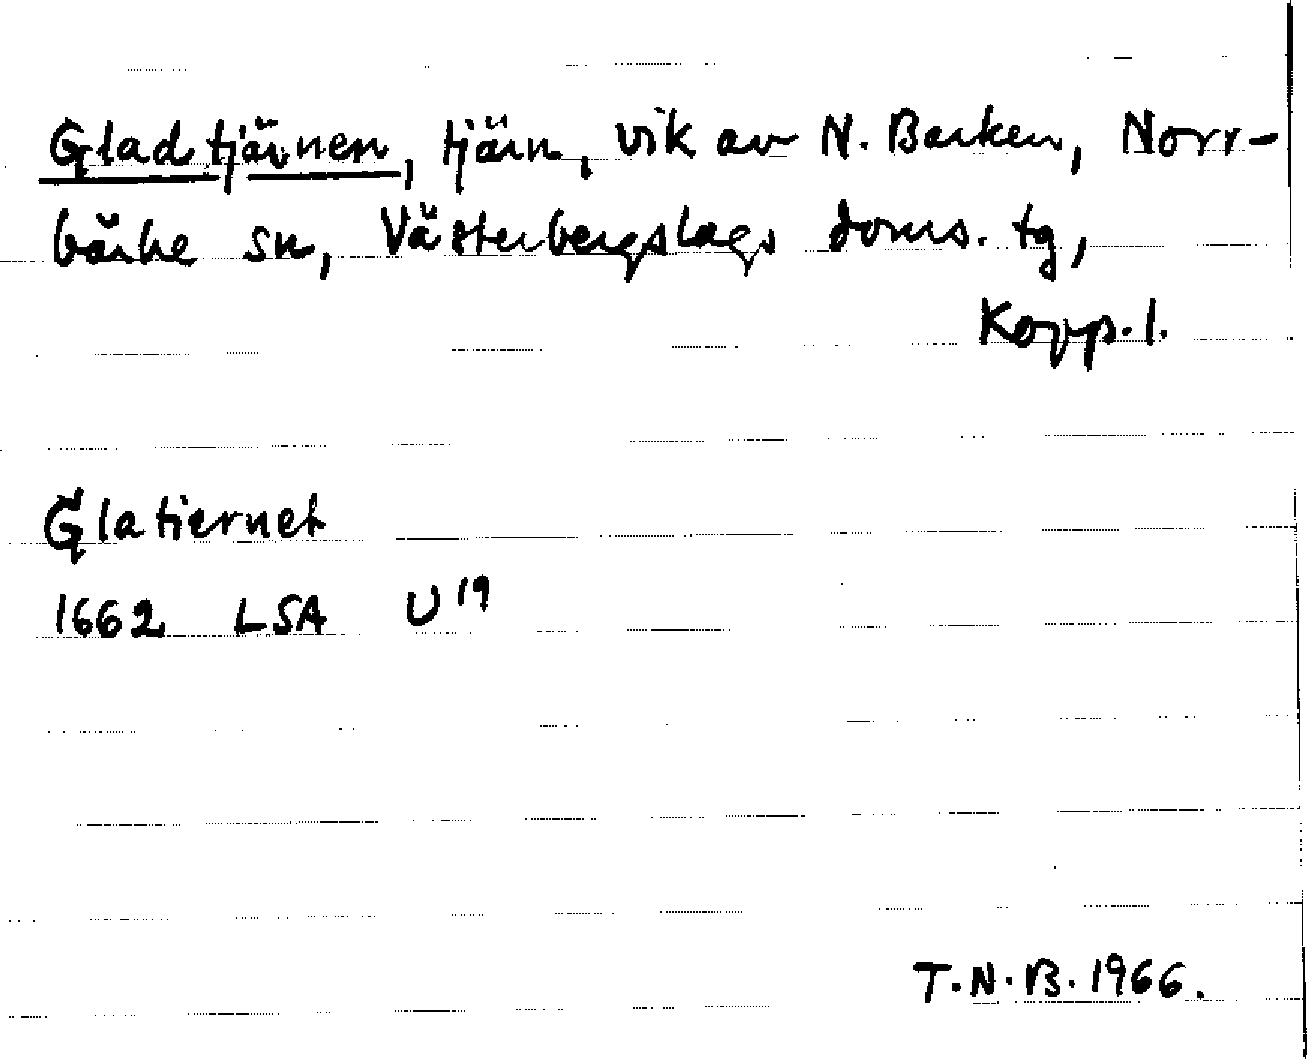 Gladtjärnen, tjärn, vik av N. Barken, Norr-
bärke sn, Västerbergslags doms. tg,
Kopp. l.
Glatiernet
1662 LSA U 19
T.N.B. 1966.